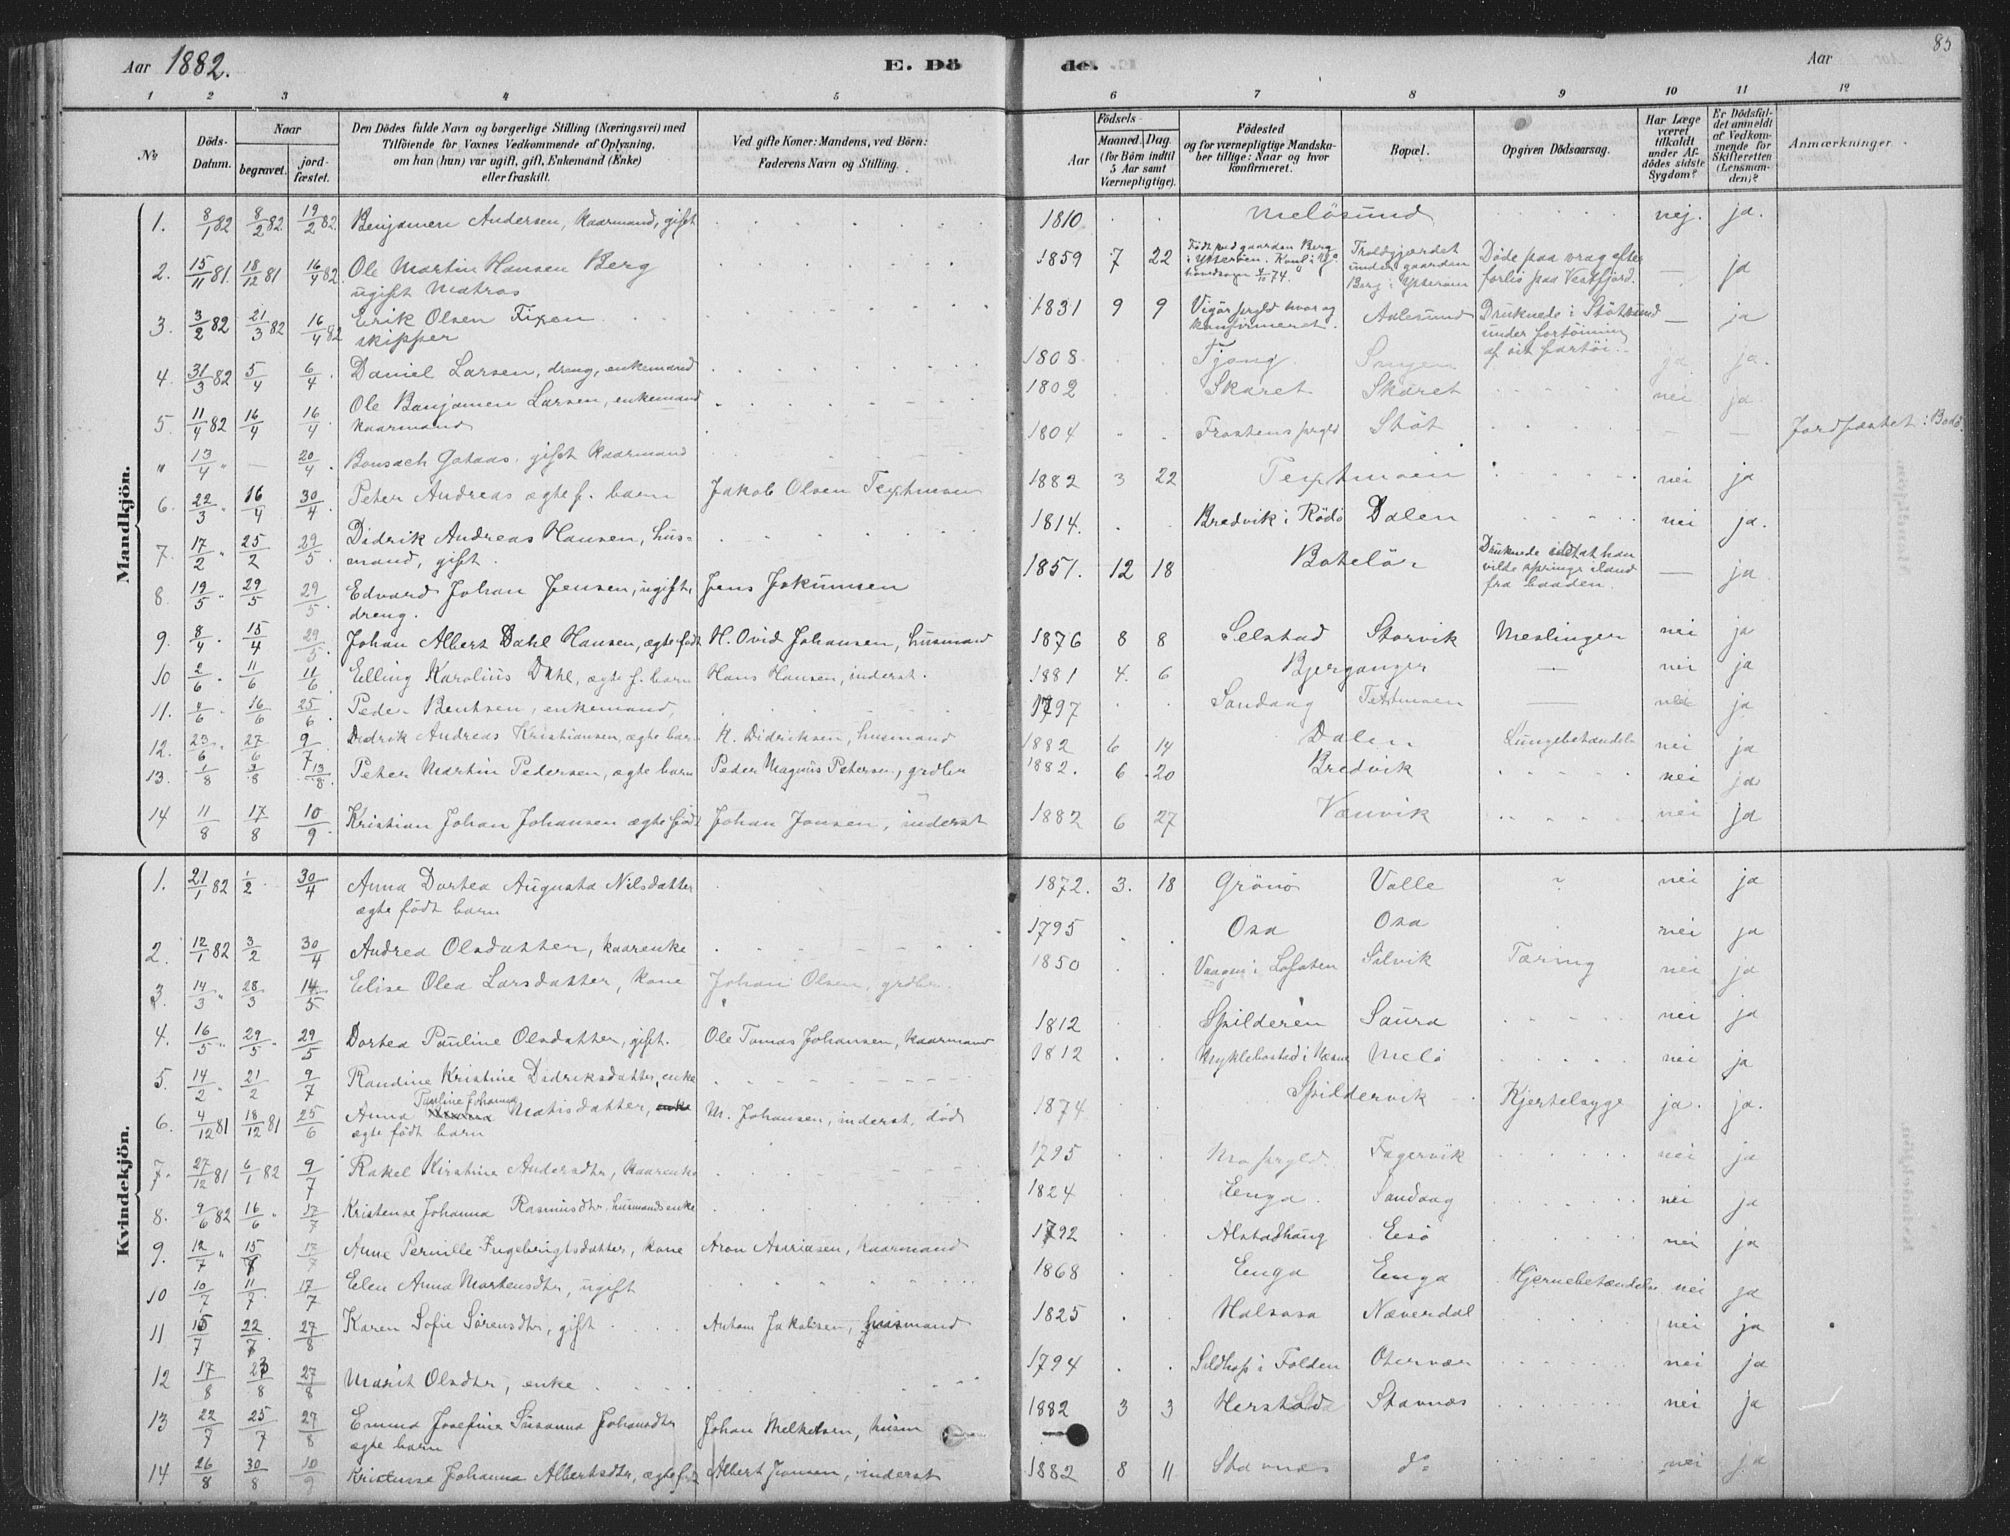 Aar 1882. E. Dö
de. Aar 85
1 2 3 4 5
6 7 8 9 10 11 12
Nr Döds-Datum. Naar begravet. jord-fæstet. Den Dödes fulde Navn og borgerlige Stilling (Næringsvei) med Tilföiende for Voxnes Vedkommende af Oplysning, om han (hun) var ugift, gift, Enkemand (Enke) eller fraskilt. Ved gifte Koner: Mandens, ved Börn: Faderens Navn og Stilling.
Födsels- Aar Maaned. Dag. (for Börn indtil 5 Aar samt Værnepligtige). Födested og for værnepligtige Mandskaber tillige: Naar og hvor konfirmeret. Bopæl. Opgiven Dödsaarsag. Har Læge været tilkaldt under Afdödes sidste Sygdom? Er Dödsfaldet anmeldt af Vedkommende for Skifteretten (Lensmanden)? Anmærkninger.
Mandkjön.
1. 8/1 82 8/2 82 19/2 82. Benjamen Andersen, kaarmand, gift 1810 Melösund nej. ja.
2. 15/11 81. 18/12 81 16/4 82. Ole Martin Hansen Berg ugift Matros 1859 7 22 Född paa gaarden Berg i Ytteröen. 74. Troldgjærdet under gaarden Berg i Ytteröen Döde paa vrag efter forlis paa Vestfjord. — ja
3. 3/2 82 21/3 82 16/4 82 Erik Olsen Fixen skipper 1831 9 9 Vigör prgld hvor og konfirmeret. Aalesund Druknede i Stötsund under fortöining af sit fartöi. — ja
4. 31/3 82 5/4 6/4 Daniel Larsen, dreng, enkemand 1808 Tjong ja ja.
5. 11/4 82 16/4 16/4 Ole Benjamen Larsen, enkemand kaarmand 1802 Skaret Skaret nei ja
" 13/4 " — 20/4. Bonsach Gataas, gift kaarmand 1804 Frostens prgld Stöt — — Jordfæstet i Bodö.
6. 22/3 " 16/4 30/4. Peter Andreas ægte f. barn Jakob Olsen Texmoen 1882 3 22 Texmoen nei ja
7. 17/2 " 25/2 29/5. Didrik Andreas Hansen, husmand, gift. 1814. Bredvik i Rödö Dalen nei ja.
8. 19/5 " 29/5 29/5. Edvard Johan Jensen, ugift, dreng. Jens Jokumsen 1857. 12 18 Botelö Druknede idet at han vilde springe iland fra baaden. — ja
9. 8/4 " 15/4 29/5. Johan Albert Dahl Hansen, ægte født H. Ovid Johansen, husmand 1876 8 8 Selstad Storvik Meslinger nei ja
10 2/6 " 11/6 11/6. Elling Karolius Dahl, ægte f. barn Hans Hansen, inderst. 1881 4. 6 Bjergangen — nei ja
11. 4/6 " 16/6 25/6. Peder Bentsen, enkemand, 1797 Sandaag Texmoen — nei ja
12. 23/6 " 27/6 9/7. Didrik Andreas Kristiansen, ægte barn K. Didriksen, husmand 1882 6 14 Dalen Lungebetændelse nei ja
13. 1/8 3/8 13/8. Peter Martin Pedersen, ægte barn Peder Magnus Petersen, grdbr 1882. 6 20 Bredvik nei ja
14 11/8 17/8 10/9. Kristian Johan Johansen ægte født Johan Jonsen, inderst 1882 6 27 Vænvik nei ja
Kvindekjön.
1. 21/1 82 1/2 30/4 Anna Dortea Augusta Nilsdatter ægte født barn 1872. 3. 18 Grönö Valle nei ja
2. 12/1 82 3/2 30/4 Andrea Olsdatter, kaarenke 1795 Osa Osa nei ja
3. 14/3 " 28/3 14/5 Elise Olea Larsdatter, kone Johan Olsen, grdbr 1850 Vaagen i Lofoten Selvik Tæring nei ja
4. 16/5 " 29/5 29/5 Dortea Pauline Olsdatter, gift. Ole Tomas Johansen, kaarmand 1812 Spilderen Saura nei ja
5. 14/2 " 21/2 9/7 Randine Kristine Didriksdatter, enke 1812 Myklebostad i Næsne Melö nei ja
6. 4/12 81 18/12 81 25/6 Anna Pauline Johanna Matisdatter, enke ægte født barn M. Johansen, inderst, död 1874 Spildervik Kjertelsyge ja. ja.
7. 27/12 81 6/1 82 9/7 Rakel Kirstine Andersdtr, kaarenke 1795 Mo prgld. Fagervik nei ja
8. 9/6 82 16/6 " 17/7 Kristense Johanna Rasmusdtr. husmandsenke 1824 Enga Sandaag nei ja
9. 12/7 " 15/7 17/7 Anne Pernille Ingebrigtsdatter, kone Aron Asriasen, kaarmand 1792 Alstadhaug Eisö nei ja
10 10/7 11/7 17/7 Elen Anna Mortensdtr, ugift 1868 Enga Enga Hjernebetændelse nei ja
11 15/7 22/7. 27/8 Karen Sofie Sörensdtr, gift Antom Jakobsen, husmand 1825 Halsosa Næverdal nei ja
12 17/8 23/8 27/8 Marit Olsdtr, enke 1794 Sildhop i Folden Otervær nei ja
13 22/7 25/7 27/8 Emma Josefine Susanna Johansdtr ægte barn Johan Melkelsen, husm 1882 3 3 Herstad Stavnæs nei ja
14 26/8 30/8 10/9 Kristense Johanna Albertsdtr, ægte født Albert Jonsen, inderst 1882 8 11 Stavnæs do nei ja